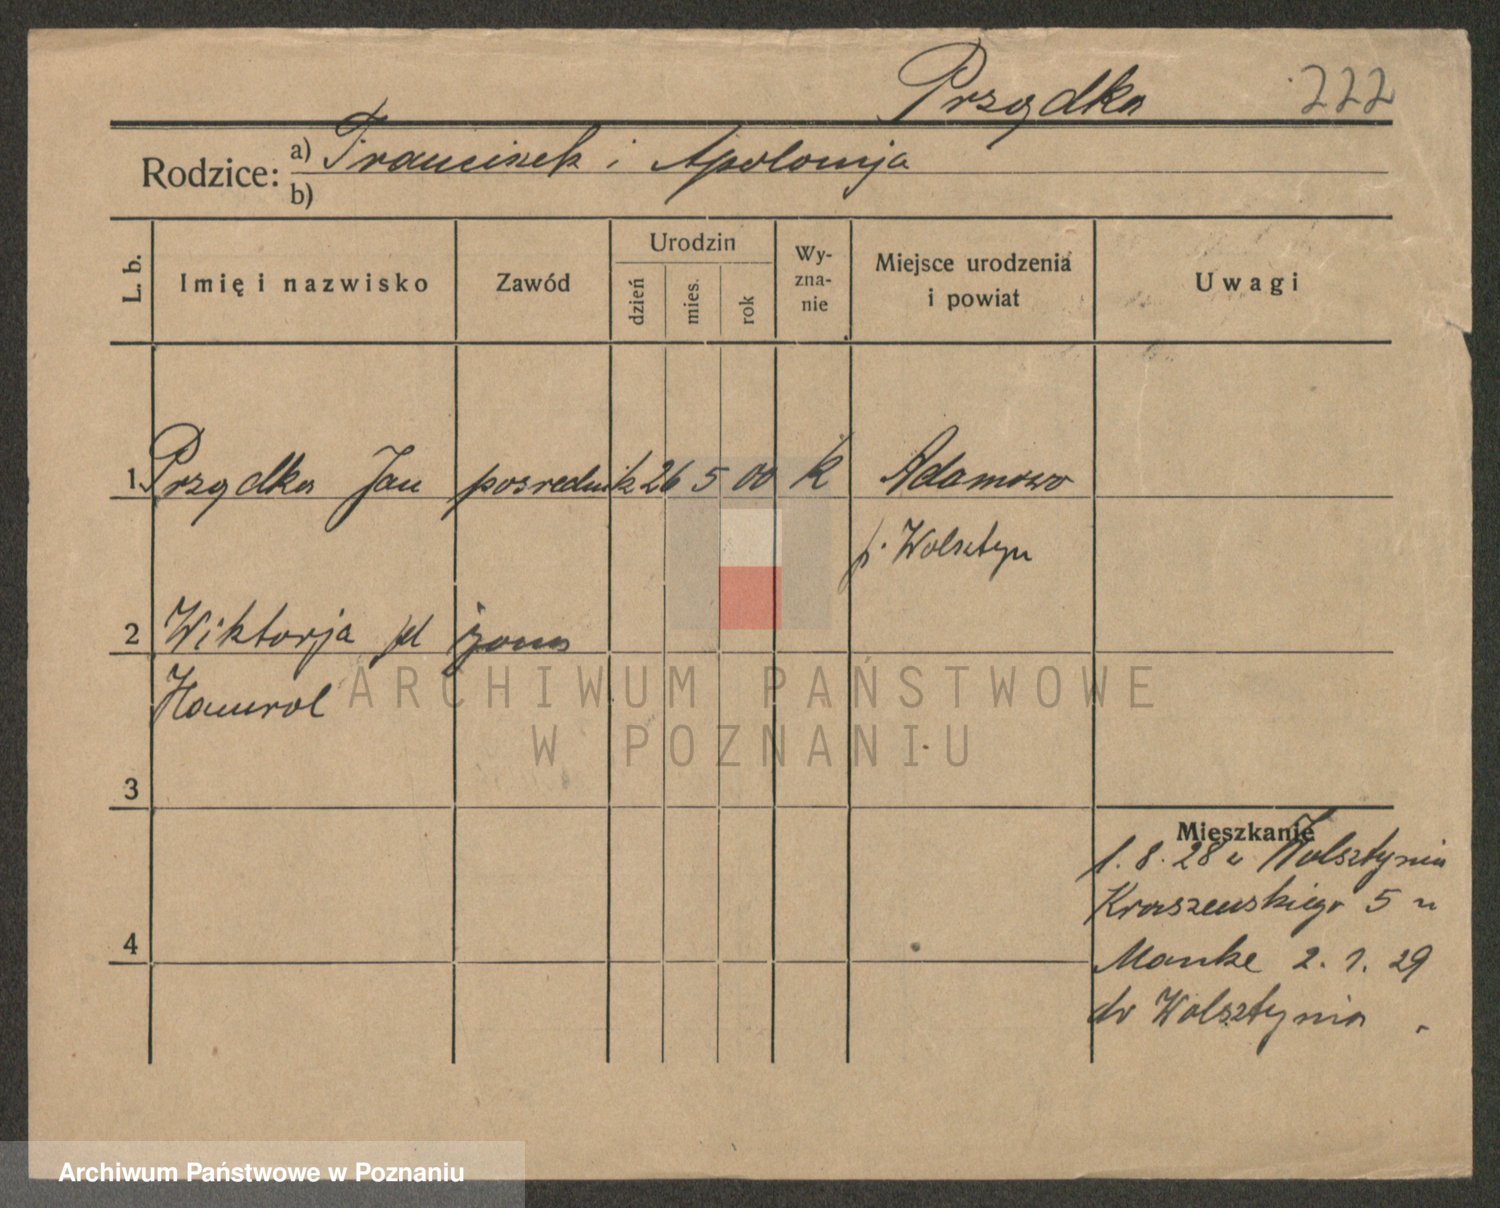 Prządka 222
Rodzice: a) Franciszek i Apolonja
b)
L. b. Imię i nazwisko Zawód Urodzin dzień mies. rok Wy-zna-nie Miejsce urodzenia i powiat Uwagi
1. Prządka Jan pośrednik 26 5 00 k Adamowo
p. Wolsztyn
2 Wiktorja żona
Hamrol
ARCHIWUM PAŃSTWOWE
W POZNANIU
3
Mieszkanie
1. 8. 28 z Wolsztynia
Kraszewskiego 5 u
Manke 2. 1. 29
do Wolsztynia
4
Archiwum Państwowe w Poznaniu